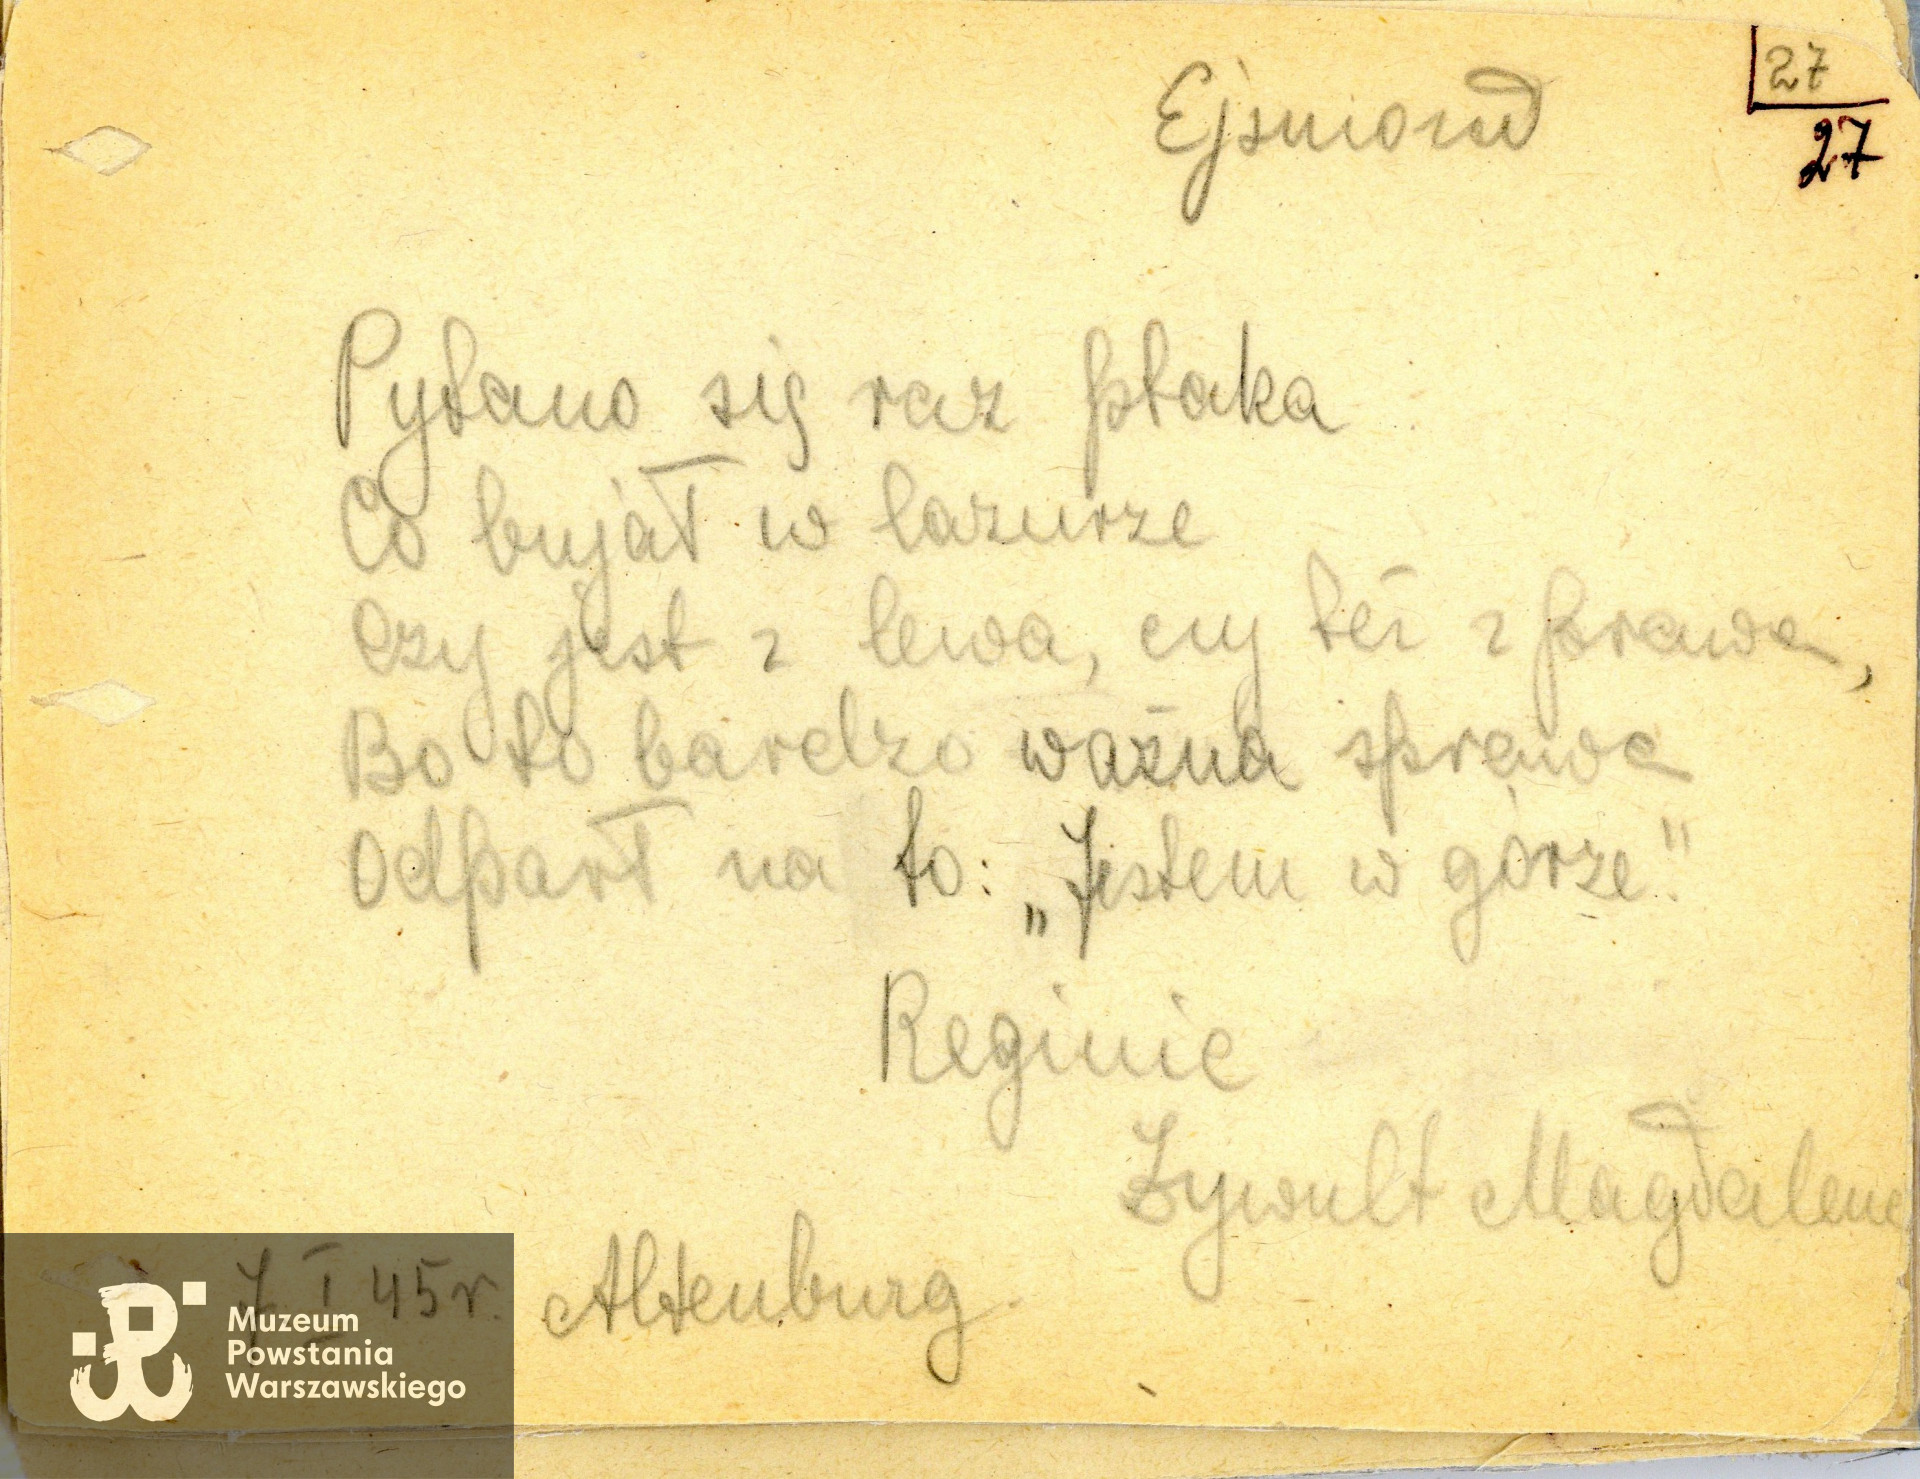 27
27
Ejsmond
Pytano się raz ptaka
Co bujał w lazurze
Czy jest z lewa, czy też z prawa,
Bo to bardzo ważna sprawa
Odparł na to: „Jestem w górze."
Reginie
Żywult Magdalena
7 I 45 r. Altenburg.
Muzeum
Powstania
Warszawskiego